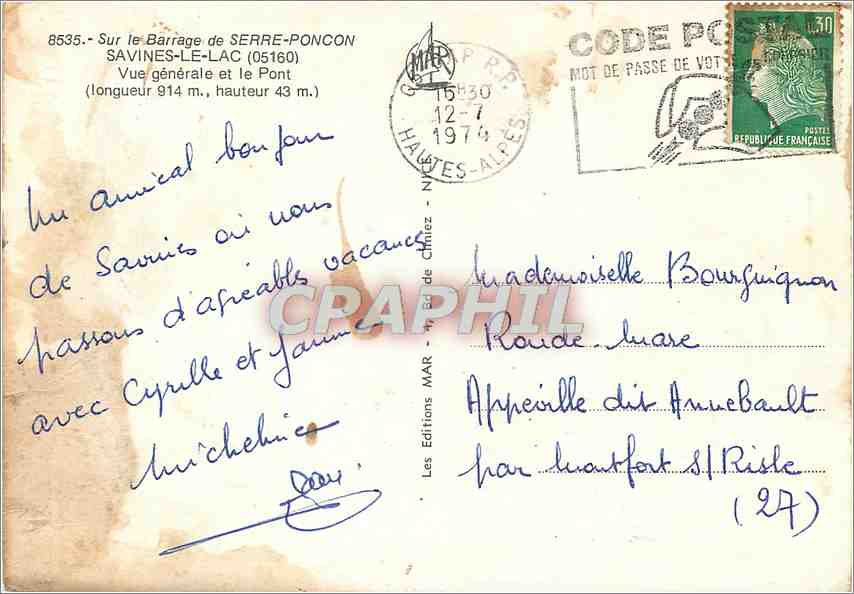 8535.- Sur le Barrage de SERRE-PONCON
SAVINES-LE-LAC (05160)
Vue générale et le Pont
(longueur 914 m., hauteur 43 m.)
MAR
GAP R.P.
15H30
12-7
1974
HAUTES-ALPES
CODE POSTAL
MOT DE PASSE DE VOTRE COURRIER
0,30
POSTES
REPUBLIQUE FRANÇAISE
Un amical bonjour
de Savines où nous
passons d'agréables vacances
avec Cyrille et
Micheline
Les Editions MAR - Bd de Cimiez - NICE
CPAPHIL
Mademoiselle Bourguignon
Ronde-Mare
Appeville dit Annebault
par Montfort s/Risle
(27)